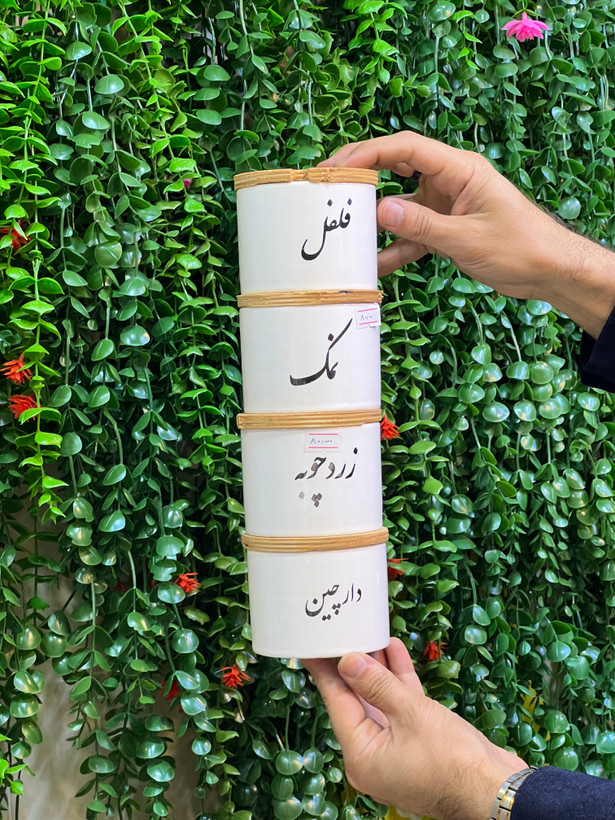 فلفل
نمک
زردچوبه
دارچین